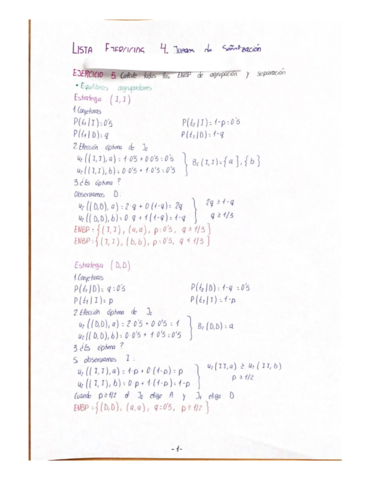 LISTA EJERCICIOS 4. Juegos de Señalización
EJERCICIO 5. Calcule todos los ENBP de agrupación y separación
• Equilibrios agrupadores
Estrategia (I, I)
1. Conjeturas
P(t₁|I) = 0'5 P(t₂|I) = 1-p = 0'5
P(t₁|D) = q P(t₂|D) = 1-q
2. Elección óptima de J₂
u₂((I, I), a) = 1·0'5 + 0·0'5 = 0'5
u₂((I, I), b) = 0·0'5 + 1·0'5 = 0'5
B₂(I, I) = {a}, {b}
3. ¿Es óptima?
Observamos D:
u₂((D, D), a) = 2·q + 0(1-q) = 2q
u₂((D, D), b) = 0·q + 1(1-q) = 1-q
2q ≥ 1-q
q ≥ 1/3
ENBP = {(I, I), (a, a), p = 0'5, q ≥ 1/3}
ENBP = {(I, I), (b, a), p = 0'5, q ≥ 1/3}
Estrategia (D, D)
1. Conjeturas
P(t₁|D) = q = 0'5 P(t₂|D) = 1-q = 0'5
P(t₁|I) = p P(t₂|I) = 1-p
2. Elección óptima de J₂
u₂((D, D), a) = 2·0'5 + 0·0'5 = 1
u₂((D, D), b) = 0·0'5 + 1·0'5 = 0'5
B₂(D, D) = a
3. ¿Es óptima?
Si observamos I:
u₂((I, I), a) = 1·p + 0(1-p) = p
u₂((I, I), b) = 0·p + 1(1-p) = 1-p
u₂(II, a) ≥ u₂(II, b)
p ≥ 1/2
Cuando p ≥ 1/2 el J₂ elige A y J₁ elige D
ENBP = {(D, D), (a, a), q = 0'5, p ≥ 1/2}
-1-